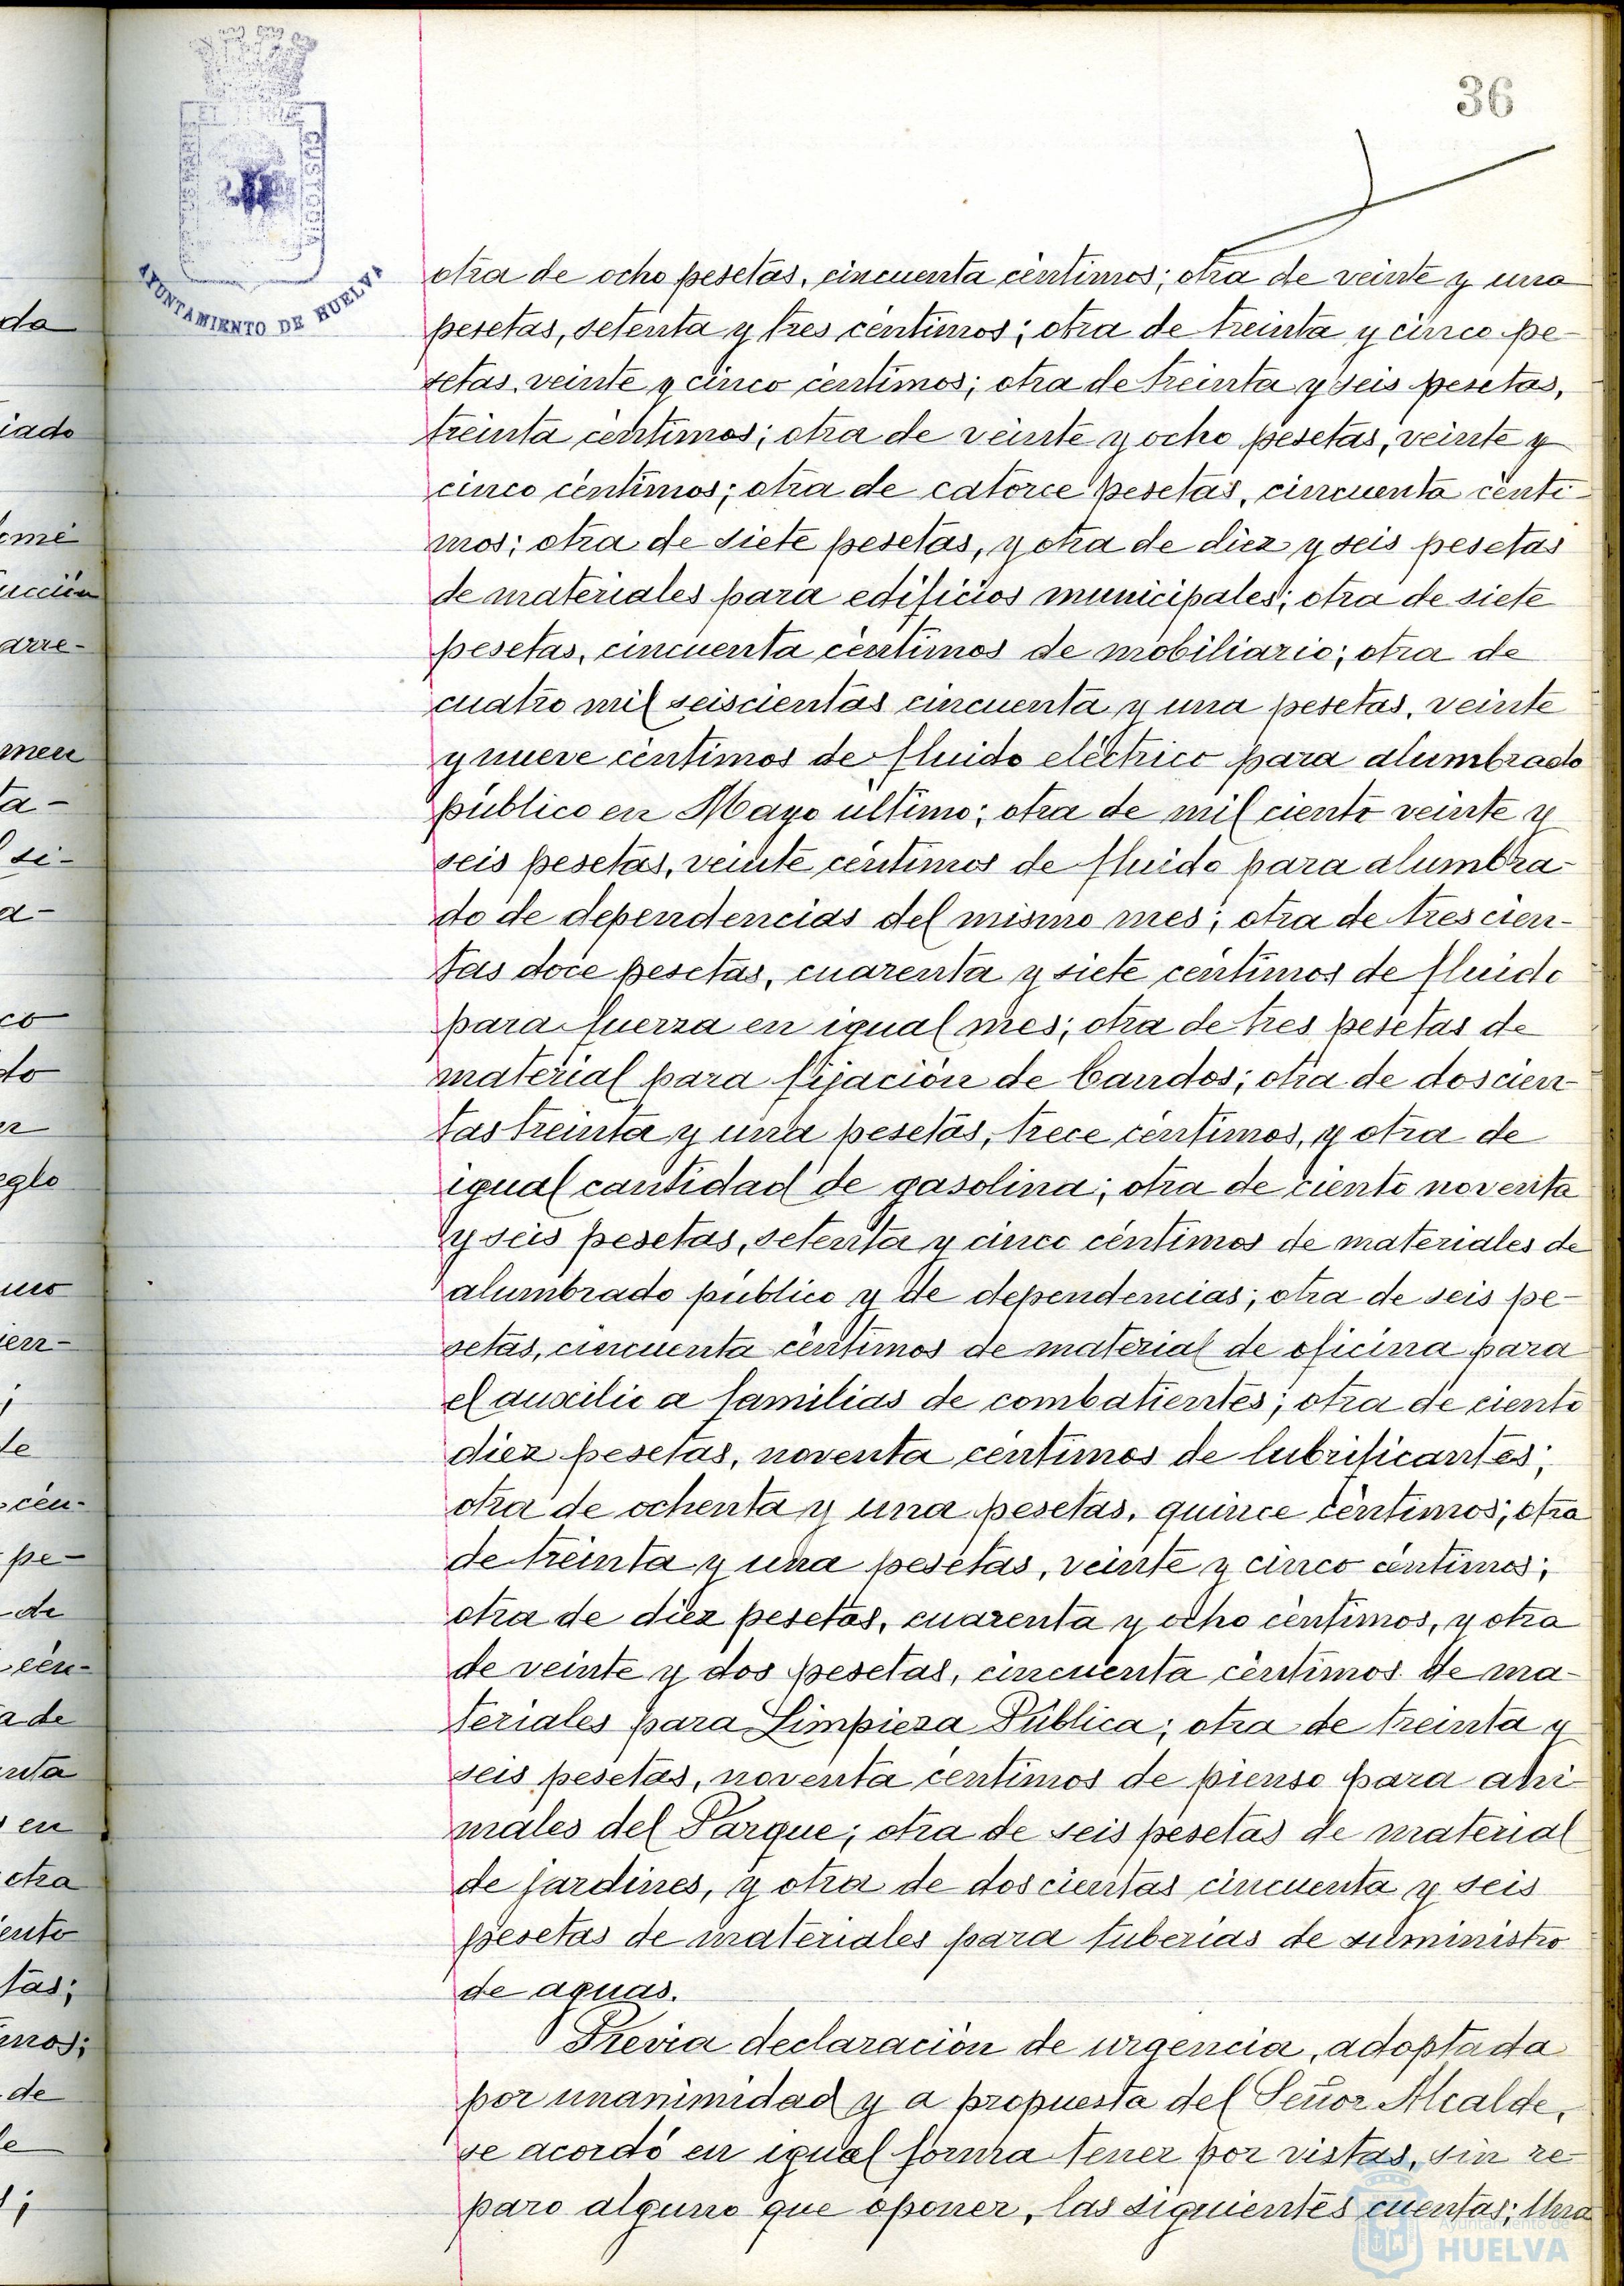 36
AYUNTAMIENTO DE HUELVA
otra de ocho pesetas, cincuenta céntimos; otra de veinte y una
pesetas, setenta y tres céntimos; otra de treinta y cinco pe-
setas, veinte y cinco céntimos; otra de treinta y seis pesetas,
treinta céntimos; otra de veinte y ocho pesetas, veinte y
cinco céntimos; otra de catorce pesetas, cincuenta cénti-
mos; otra de siete pesetas, y otra de diez y seis pesetas
de materiales para edificios municipales; otra de siete
pesetas, cincuenta céntimos de mobiliario; otra de
cuatro mil seiscientas cincuenta y una pesetas, veinte
y nueve céntimos de fluido eléctrico para alumbrado
público en Mayo último; otra de mil ciento veinte y
seis pesetas, veinte céntimos de fluido para alumbra-
do de dependencias del mismo mes; otra de trescien-
tas doce pesetas, cuarenta y siete céntimos de fluido
para fuerza en igual mes; otra de tres pesetas de
material para fijación de bandos; otra de doscien-
tas treinta y una pesetas, trece céntimos, y otra de
igual cantidad de gasolina; otra de ciento noventa
y seis pesetas, setenta y cinco céntimos de materiales de
alumbrado público y de dependencias; otra de seis pe-
setas, cincuenta céntimos de material de oficina para
el auxilio a familias de combatientes; otra de ciento
diez pesetas, noventa céntimos de lubrificantes;
otra de ochenta y una pesetas, quince céntimos; otra
de treinta y una pesetas, veinte y cinco céntimos;
otra de diez pesetas, cuarenta y ocho céntimos, y otra
de veinte y dos pesetas, cincuenta céntimos de ma-
teriales para Limpieza Pública; otra de treinta y
seis pesetas, noventa céntimos de pienso para ani-
males del Parque; otra de seis pesetas de material
de jardines, y otra de doscientas cincuenta y seis
pesetas de materiales para tuberias de suministro
de aguas.
Previa declaración de urgencia, adoptada
por unanimidad y a propuesta del Señor Alcalde,
se acordó en igual forma tener por vistas, sin re-
paro alguno que oponer, las siguientes cuentas; Una
Ayuntamiento de
HUELVA